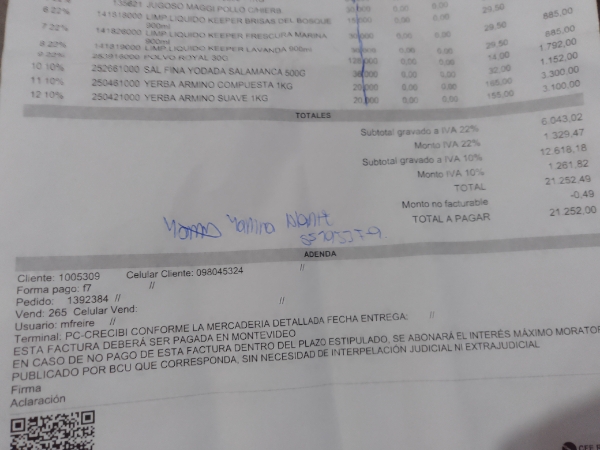 135821 JUGOSO MAGGI POLLO
6 22% 141519000 LIMP.LIQUIDO KEEPER BRISAS DEL BOSQUE 900ml 0,00 0,00 29,50 885,00
7 22% 141826000 LIMP.LIQUIDO KEEPER FRESCURA MARINA 900ml 0,00 0,00 29,50 885,00
8 22% LIMP.LIQUIDO KEEPER LAVANDA 900ml 0,00 0,00
POLVO ROYAL 30G 0,00 0,00 14,00 1.792,00
10 10% 252681000 SAL FINA YODADA SALAMANCA 500G 0,00 0,00 32,00 1.152,00
11 10% 250451000 YERBA ARMINO COMPUESTA 1KG 20,000 0,00 0,00 165,00 3.300,00
12 10% 250421000 YERBA ARMINO SUAVE 1KG 20,000 0,00 0,00 155,00 3.100,00
TOTALES
Subtotal gravado a IVA 22% 6.043,02
Monto IVA 22% 1.329,47
Subtotal gravado a IVA 10% 12.618,18
Monto IVA 10% 1.261,82
TOTAL 21.252,49
Monto no facturable -0,49
TOTAL A PAGAR 21.252,00
Yamina
ADENDA
Cliente: 1005309 Celular Cliente: 098045324 //
Forma pago: f7 //
Pedido: 1392384 //
Vend: 265 Celular Vend: //
Usuario: mfreire //
Terminal: PC-CRECIBI CONFORME LA MERCADERIA DETALLADA FECHA ENTREGA: //
ESTA FACTURA DEBERÁ SER PAGADA EN MONTEVIDEO
EN CASO DE NO PAGO DE ESTA FACTURA DENTRO DEL PLAZO ESTIPULADO, SE ABONARÁ EL INTERÉS MÁXIMO MORATOR
PUBLICADO POR BCU QUE CORRESPONDA, SIN NECESIDAD DE INTERPELACIÓN JUDICIAL NI EXTRAJUDICIAL
Firma
Aclaración